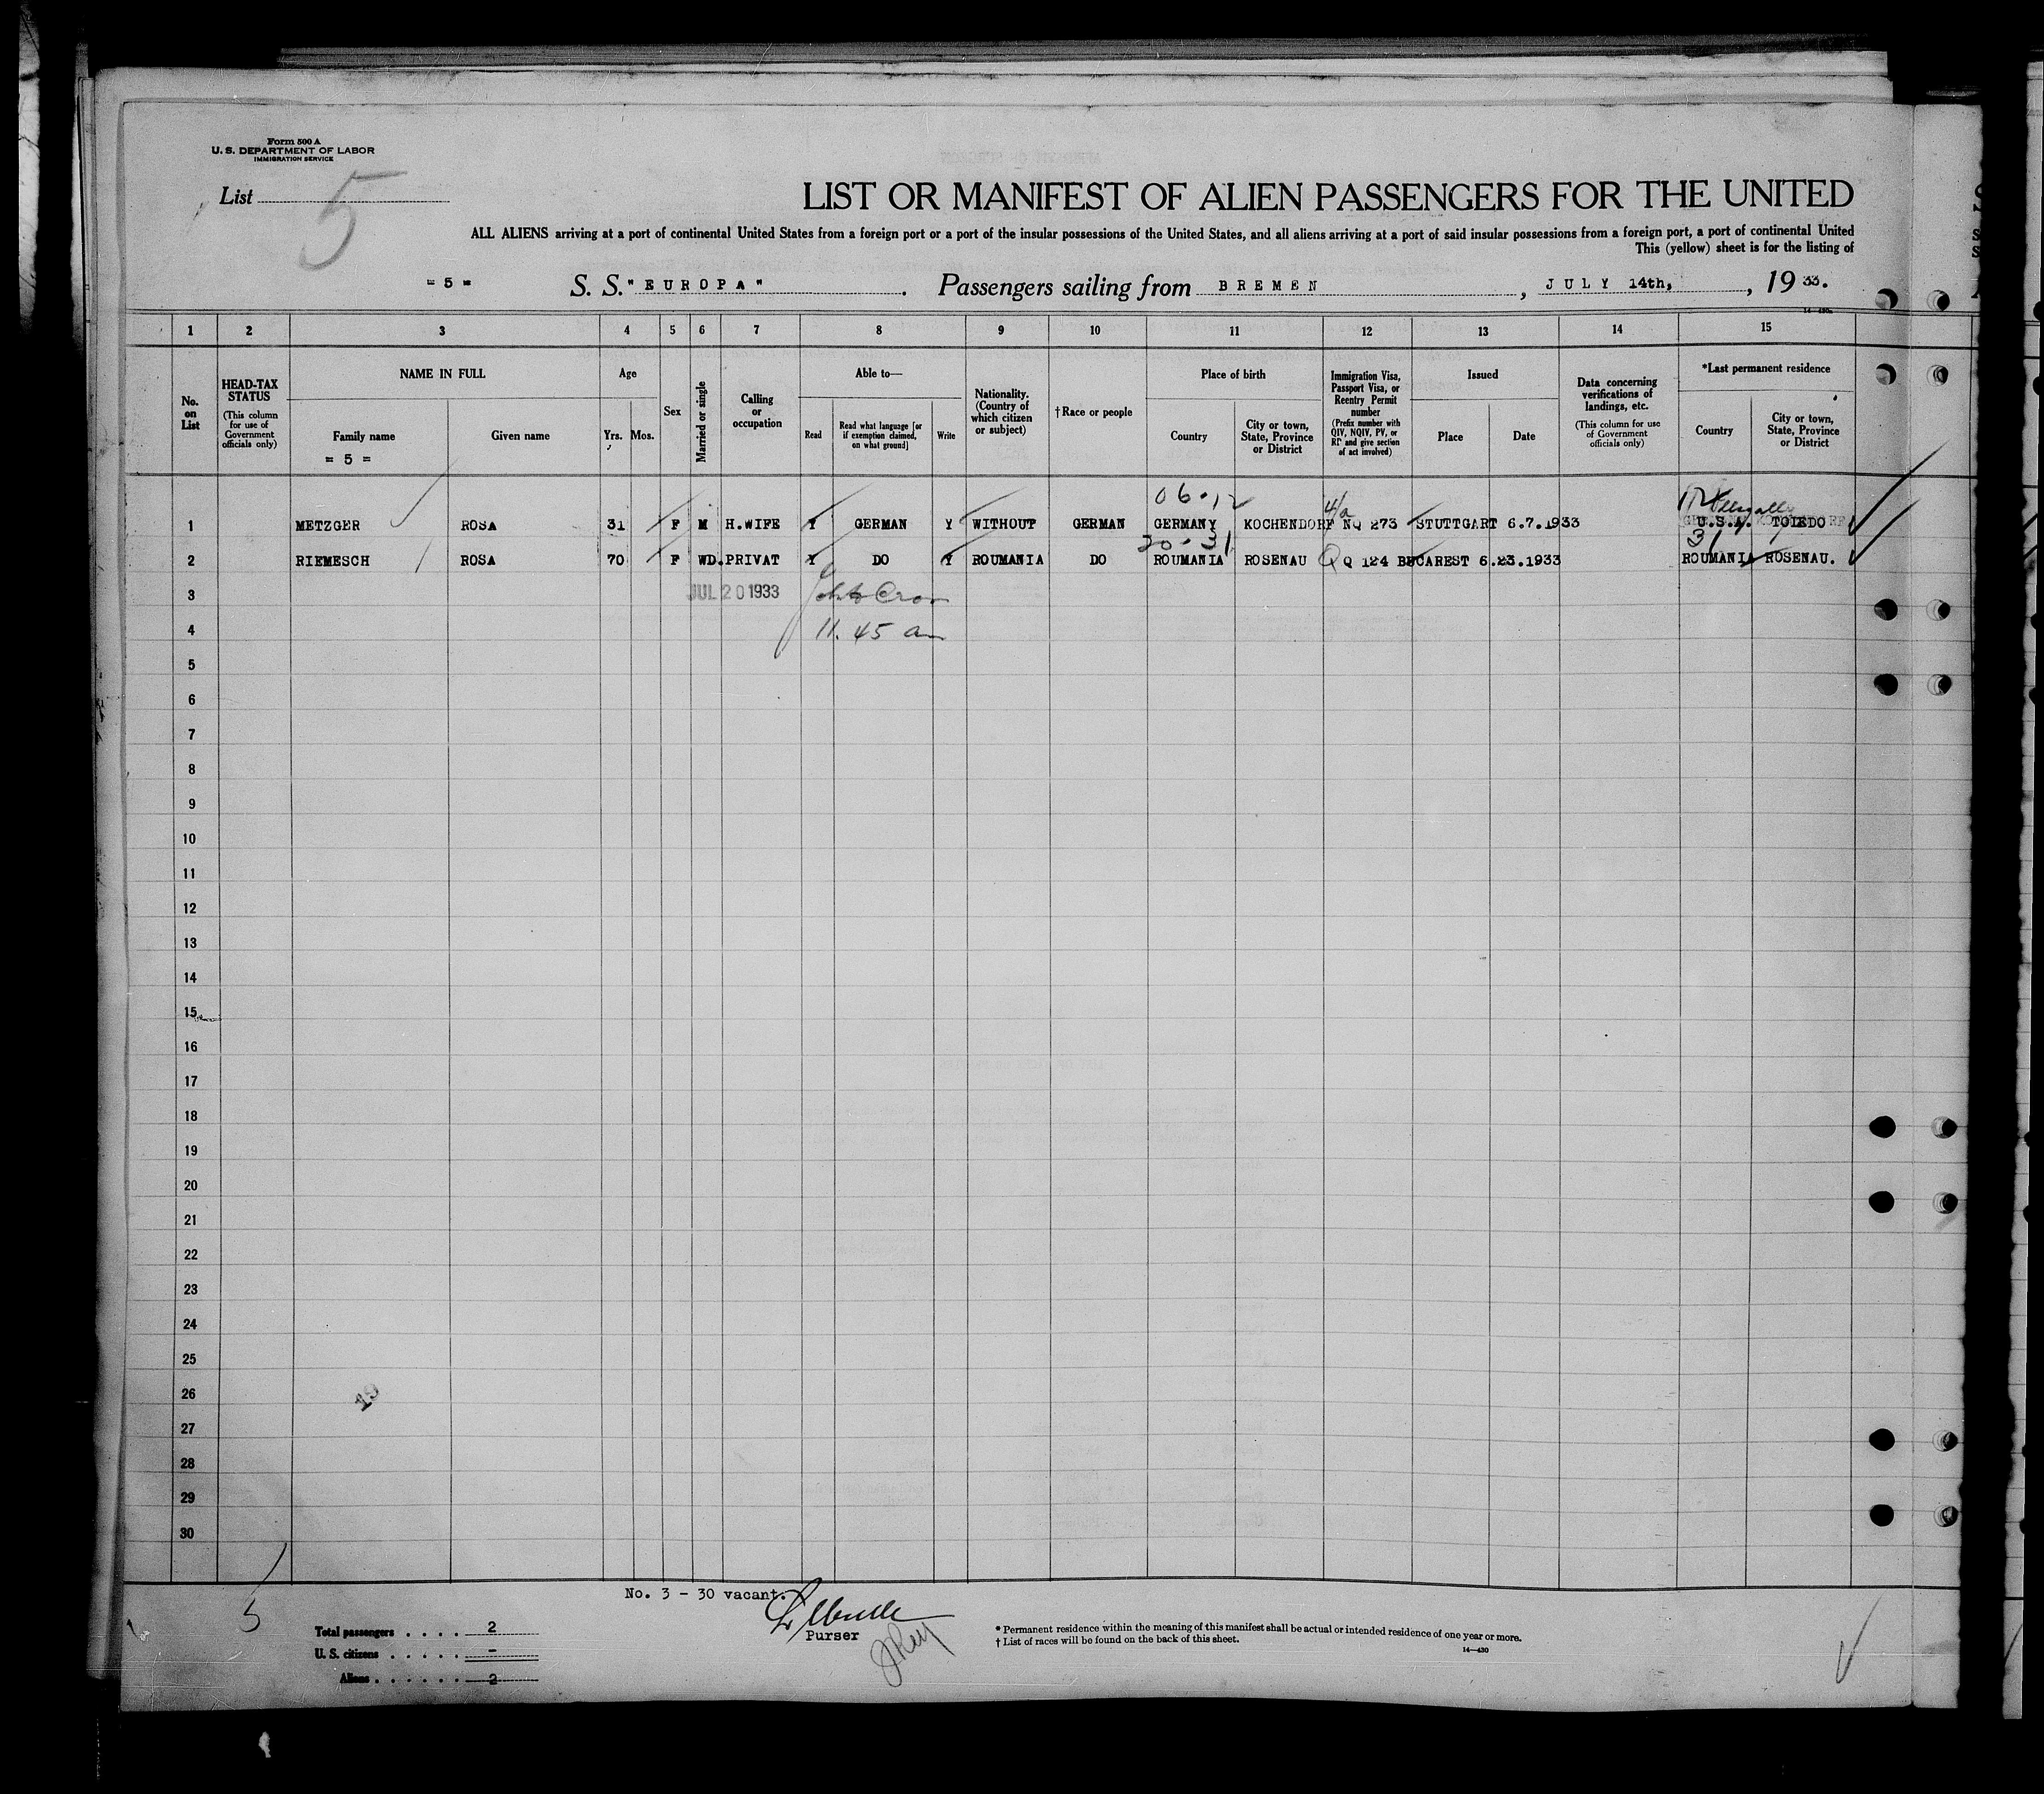 Form 500 A
U. S. DEPARTMENT OF LABOR
IMMIGRATION SERVICE
List 5
LIST OR MANIFEST OF ALIEN PASSENGERS FOR THE UNITED
ALL ALIENS arriving at a port of continental United States from a foreign port or a port of the insular possessions of the United States, and all aliens arriving at a port of said insular possessions from a foreign port, a port of continental United
This (yellow) sheet is for the listing of
= 5 = S. S. "EUROPA" . Passengers sailing from BREMEN , JULY 14th, , 19 33.
1 2 3 4 5 6 7 8 9 10 11 12 13 14 15
No. on List
HEAD-TAX STATUS (This column for use of Government officials only)
NAME IN FULL
Family name
= 5 =
Given name
Age
Yrs. Mos.
Sex
Married or single
Calling or occupation
Able to—
Read
Read what language [or if exemption claimed, on what ground]
Write
Nationality. (Country of which citizen or subject)
†Race or people
Place of birth
Country
City or town, State, Province or District
Immigration Visa, Passport Visa, or Reentry Permit number (Prefix number with QIV, NQIV, PV, or RP and give section of act involved)
Issued
Place
Date
Data concerning verifications of landings, etc. (This column for use of Government officials only)
*Last permanent residence
Country
City or town, State, Province or District
06-12
4/a
1 METZGER ROSA 31 F M H.WIFE Y GERMAN Y WITHOUT GERMAN GERMANY KOCHENDORF NQ 273 STUTTGART 6.7.1933 U.S.A. TOLEDO
20-31
31
2 RIEMESCH ROSA 70 F WD. PRIVAT Y DO Y ROUMANIA DO ROUMANIA ROSENAU Q Q 124 BUCAREST 6.23.1933 ROUMANIA ROSENAU.
3 JUL 20 1933
4 11.45 am
5
6
7
8
9
10
11
12
13
14
15
16
17
18
19
20
21
22
23
24
25
26
27
28
29
30
19
No. 3 - 30 vacant.
5
Purser
Total passengers . . . . 2
U. S. citizens . . . . . -
Aliens . . . . . . 2
* Permanent residence within the meaning of this manifest shall be actual or intended residence of one year or more.
† List of races will be found on the back of this sheet.
14—430